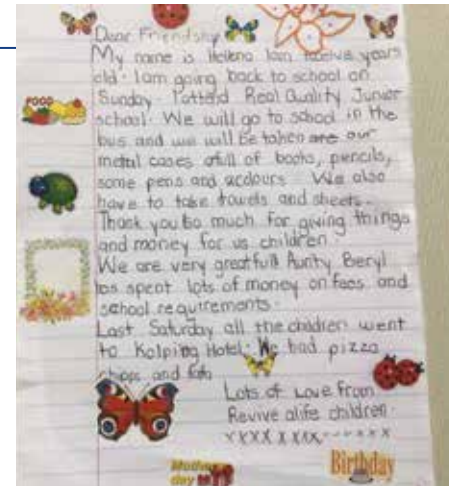 Dear Friendship
My name is Hellena Iam twelve years
old. Iam going back to school on
Sunday. I attend Real Quality Junior
school. We will go to school in the
bus and we will be taken are our
metal cases full of books, pencils,
some pens and colours. We also
have to take towels and sheets.
Thank you so much for giving things
and money for us children.
We are very greatfull Aunty Beryl
has spent lots of money on fees and
school requitrements.
Last Saturday all the children went
to Kolping Hotel. We had pizza
chips and
FOOD
Lots of Love from
Revive alife children.
xxxx x xxx------xxx
Mothers
day
Birthday